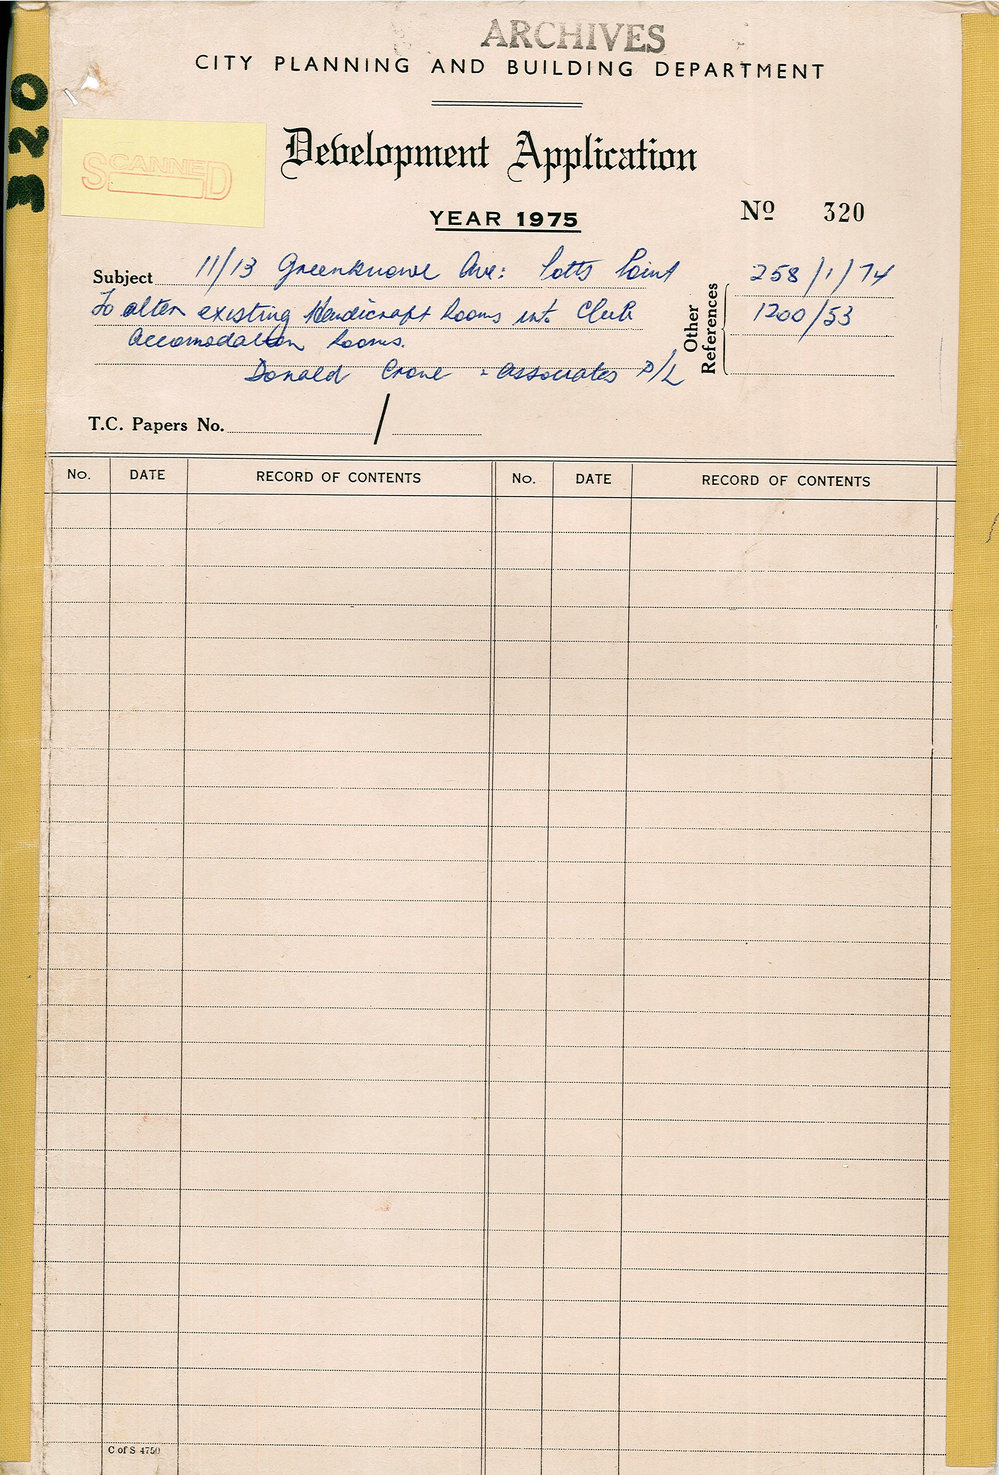 ARCHIVES
CITY PLANNING AND BUILDING DEPARTMENT
320
SCANNED
Development Application
YEAR 1975
No 320
Subject 11/13 Greenknowe Ave: Potts Point
To alter existing Handicraft Rooms into Club
Accomodation Rooms.
Donald Crone - Associates P/L
Other References
258/1/74
1200/53
T.C. Papers No. /
No. DATE RECORD OF CONTENTS No. DATE RECORD OF CONTENTS
C of S 4750